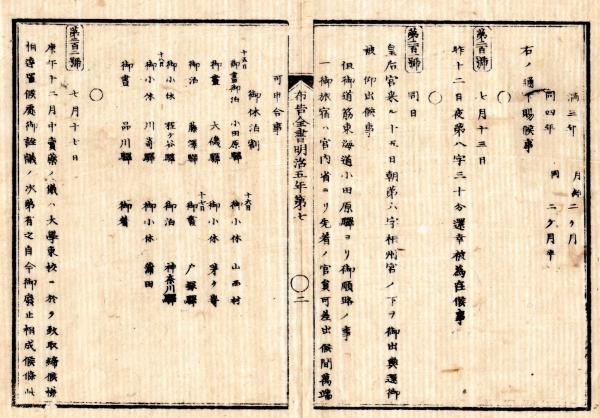 満三年 月給二ケ月
同四年 同二ケ月半
右ノ通下賜候事
第二百號 ○ 七月十三日
昨十二日夜第八字三十分還幸被為在候事
第二百一號 ○ 同日
皇后宮來ル十五日朝第六字相州宮ノ下ヲ御出輿還御
被 仰出候事
但御道筋東海道小田原驛ヨリ御順路ノ事
一御旅宿ハ宮内省ヨリ先着ノ官員可差出候間萬端
布告全書明治五年第七
○ 二
可申合事
御休泊割
十五日
御晝御泊 小田原驛
十六日
御小休 山西村
御晝 大磯驛
御小休 茅ケ崎
御泊 藤澤驛
十七日
御晝 戸塚驛
十八日
御小休 程ケ谷驛
御泊 神奈川驛
御小休 川崎驛
御小休 蒲田
御晝 品川驛
御着
第二百二號 ○ 七月十七日
庚午十二月中賣藥ノ儀ハ大學東校ニ於テ致取締候様
相達置候處御詮議ノ次第有之自今御廢止相成候條此